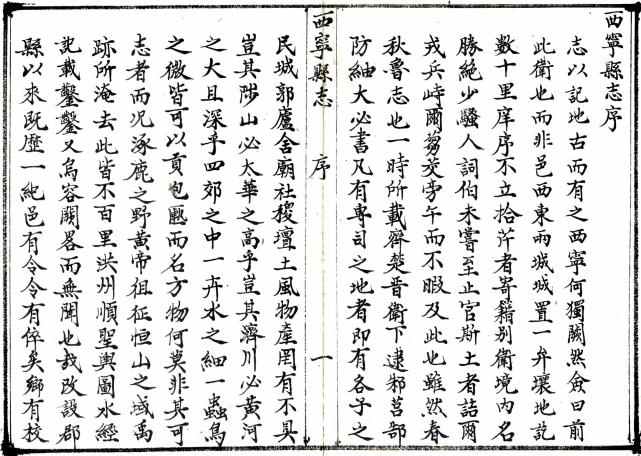 西寧縣志序
志以記地古而有之西寧何獨闕然僉曰前
此衛也而非邑西東兩城城置一弁壤地訖
數十里庠序不立拾芹者寄籍別衛境內名
勝絶少騷人詞伯未嘗至止官斯土者詰爾
戎兵峙爾芻茭旁午而不暇及此也雖然春
秋魯志也一時所載齊楚晉衛下逮邾莒郜
防紬大必書凡有專司之地者即有各子之
西寧縣志 序 一
民城郭廬舍廟社稷壇土風物產罔有不具
豈其陟山必太華之高乎豈其濟川必黃河
之大且深乎四郊之中一卉水之細一蟲鳥
之微皆可以貢包匭而名方物何莫非其可
志者而况涿鹿之野黃帝徂征恒山之域禹
跡所淹去此皆不百里洪州順聖輿圖水經
記載鑿鑿又烏容闕畧而無聞也哉改設郡
縣以來旣歷一紀邑有令令有倅矣鄉有校